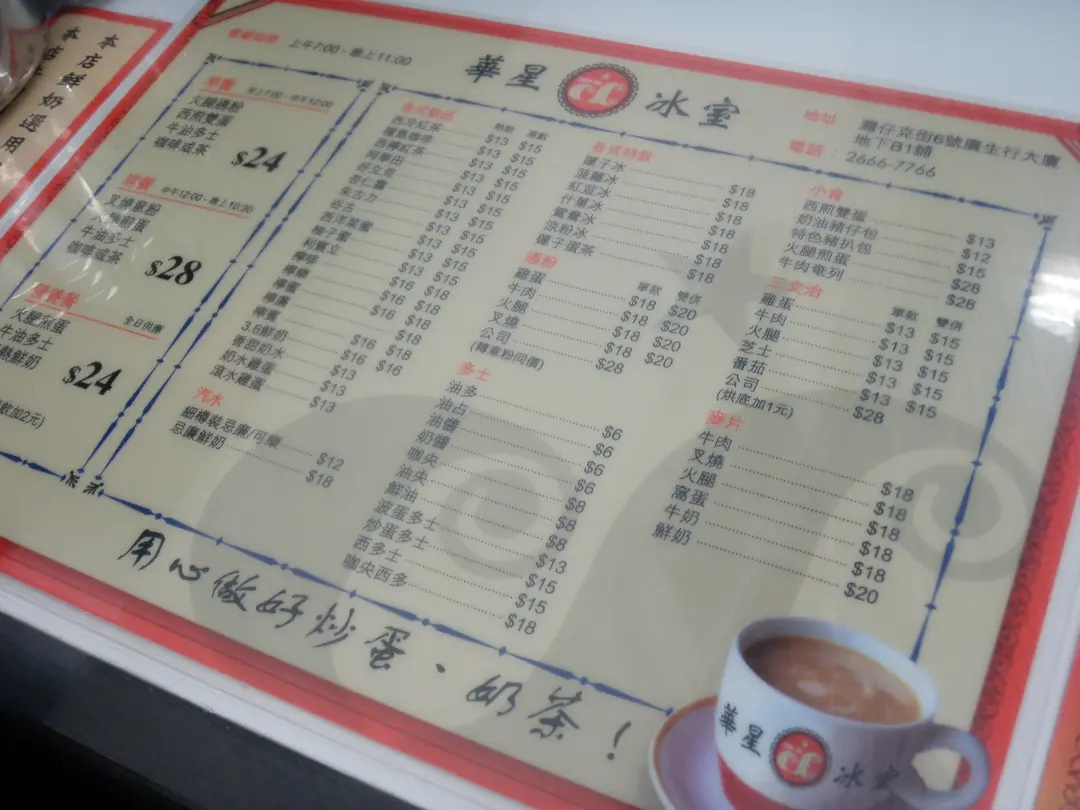 本店鮮奶選用
本店
上午7:00 - 晚上11:00
華星冰室
地址
灣仔克街6號廣生行大廈
地下B1舖
電話：2666-7766
早餐 早上7:00 - 中午12:00
火腿通粉
西煎雙蛋
牛油多士
咖啡或茶
$24
常餐 中午12:00 - 晚上10:30
叉燒意粉
煎蛋
牛油多士
咖啡或茶
$28
營養餐 全日供應
火腿煎蛋
牛油多士
熱鮮奶
$24
飲加2元)
各式飲品 熱飲 凍飲
$13 $15
$13 $15
西檸紅茶 $13 $15
阿華田 $13 $15
好立克 $13 $15
杏仁霜 $13 $15
朱古力 $13 $15
谷古 $13 $15
西洋菜蜜 $13 $15
柚子蜜 $13 $15
利賓立 $13 $15
$16 $18
$16 $18
$16 $18
3.6鮮奶 $16 $18
香甜奶水 $16 $16
奶水雞蛋 $13
滾水雞蛋 $13
$13
汽水
細樽裝忌廉/可樂 $12
忌廉鮮奶 $18
各式特飲
蓮子冰 $18
菠蘿冰 $18
紅荳冰 $18
什菓冰 $18
鴛鴦冰 $18
涼粉冰 $18
蓮子蛋茶 $18
通粉 單款 雙併
雞蛋 $18 $20
牛肉 $18 $20
火腿 $18 $20
叉燒 $18 $20
公司 $28
(轉意粉同價)
多士
油多 $6
油占 $6
油醬 $6
奶醬 $6
咖央 $8
油央 $8
鮮油 $8
波蛋多士 $13
炒蛋多士 $15
西多士 $15
咖央西多 $18
小食
西煎雙蛋 $13
奶油豬仔包 $12
特色豬扒包 $15
火腿煎蛋 $28
牛肉奄列 $28
三文治 單款 雙併
雞蛋 $13 $15
牛肉 $13 $15
火腿 $13 $15
芝士 $13 $15
番茄 $13 $15
公司 $28
(烘底加1元)
麥片
牛肉 $18
叉燒 $18
火腿 $18
窩蛋 $18
牛奶 $18
鮮奶 $20
用心做好炒蛋、奶茶！
華星冰室